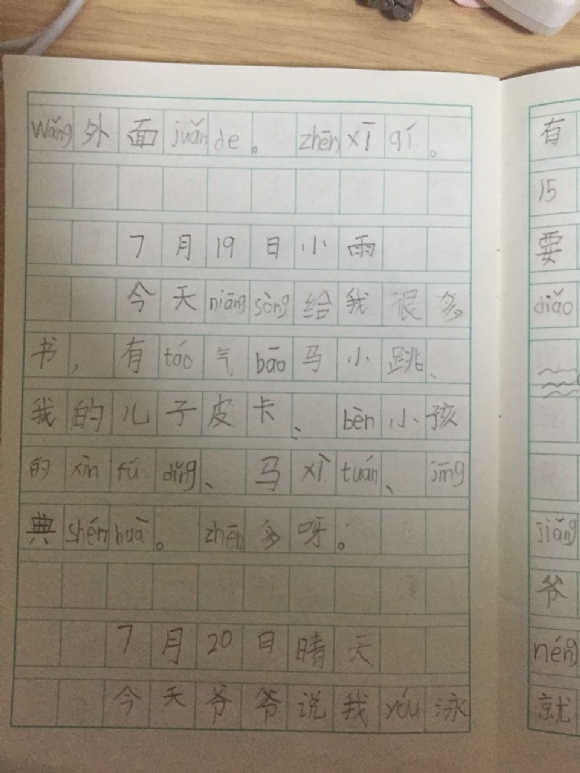 wǎng外面juǎnde。zhēnxīqí。
7月19日小雨
今天niāngsòng给我很多
书，有táo气bāo马小跳、
我的儿子皮卡、bèn小孩
的xìnfúdǐng、马xìtuán、jīng
典shénhuà。zhēn多呀。
7月20日晴天
今天爷爷说我yóu泳
有
15
要
diǎo
jiǎng
爷
néng
就